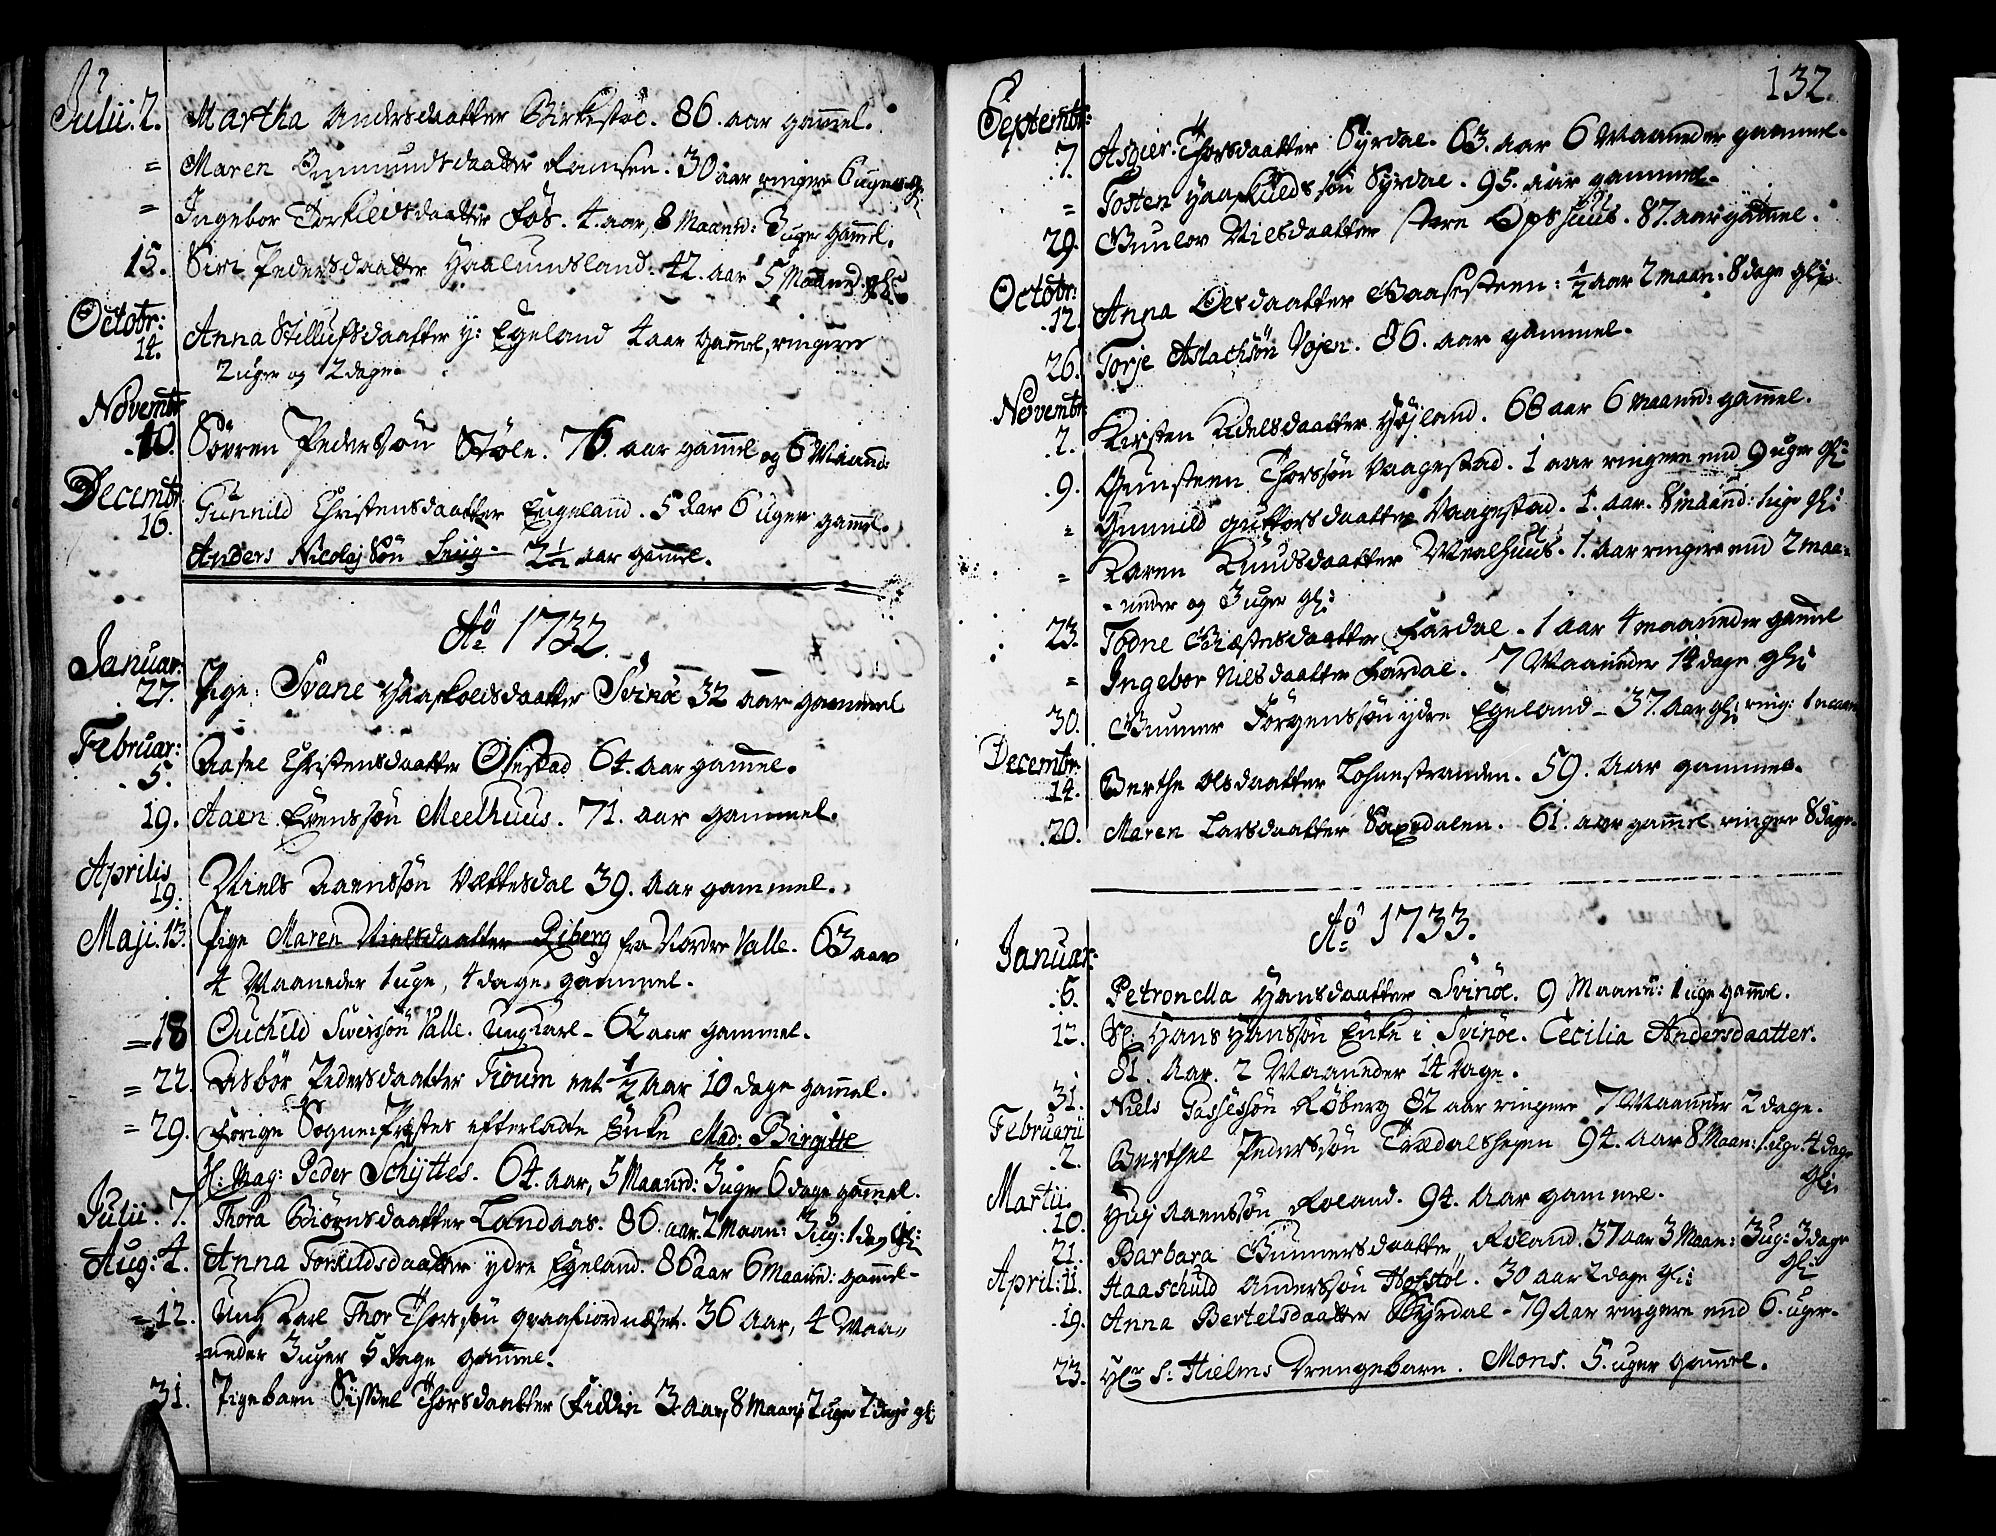 Julii. 2. Martha Andersdaatter Birkestøl. 86. aar gam̄el.
= Maren Gunmundsdaatter Ramsen. 30 aar ringer 6 uger gl:
= Ingebor Torkildsdaatter Fos. 4. aar, 8 Maaned: 3 uger gam̄el.
15. Siri Pedersdaatter Haalundsland. 42. aar 5 Maaned gl:
Octobr:
14. Anna Stillufsdaatter y: Egeland 4 aar gam̄el, ringere
2 uger og 2 dage.
Novembr
.10. Sørren Pedersøn Støle. 76. aar gam̄el og 6 Maaned:
Decembr
16. Gunnild Christensdaatter Eugeland. 5 aar 6 uger gam̄el.
Anders Nicolajsøn 2½ aar gam̄el.
Ao 1732.
Januar:
27. Pige: Svane Haaskoldsdaatter Svinøe 32 aar gammel
Februar:
. 5. Aasel Christensdaatter Ofestad 64. aar gam̄el.
19. Aaen Evenssøn Meelhuus. 71. aar gammel.
Aprilis
19. Niels Aaenssøn Vattesdal 39. aar gammel.
Maji. 13. Pige Maren Nielsdaatter Riberg fra Nordre Valle. 63 aar
4 Maaneder 1 uge, 4 dage. gammel.
=18 Ouchild Siverssøn Valle. Ung Karl - 62 aar gammel.
= 22. Asbør Pedersdaatter Tioum ret ½ aar 10 dage gam̄el.
= 29. Forige Sogne:Præstes efterladte Encke Mad: Birgitte
Sl: Mag: Peder Schyttes. 64. aar, 5 Maaned: 3 uger 6 dage gam̄el.
Julii. 7. Thora Biørnsdaatter Landaas. 86. aar. 2 Maan: 3 ug: 1 dag gl:
Aug: 4. Anna Torkildsdaatter ydre Egeland. 86 aar 6 Maaned: gam̄el.
=12. Ung Karl Thor Thorssøn Graafiordnæset. 36 aar, 4 Maa„
neder 3 uger 5 dage gam̄el.
31. Pigebarn Sissel Thorsdaatter Fidie 3 aar, 8 Maan: 2 uger 2 dage gl:
132.
Septembr:
7. Asgier Thorsdaatter Syrdal. 63. aar 6 Maaneder gammel.
= Tosten Haaskuldssøn Syrdal. 95. aar gammel.
29. Guulov Nilsdaatter store Opsahuus. 87. aar gam̄el.
Octobr:
.12. Anna Olsdaatter Gaasesteen: ½ aar 2 maan: 8 dage gl:
26. Torje Aslachsøn Vojen. 86. aar gammel.
Novembr:
.2. Kirsten Kidelsdaatter Højland. 68 aar 6 Maaned: gam̄el.
.9. Gunsteen Thorssøn Vaagestad. 1 aar ringere end 9 uger gl:
= Gunnild Guttorsdaatter Vaagestad. 1. aar. 8 maaned: 1 uge gl:
= Karen Knudsdaatter Meelhuus. 1. aar ringere end 2 maa=
- neder og 3 uger gl:
23. Todne Giæstesdaatter Fardal. 1 aar 4 maaneder gam̄el
= Ingebor Nilsdaatter Fardal. 7 Maaneder 14 dage gl:
30. Gunner Jørgenssøn ydre Egeland - 37. aar gl: ring: 1 maan
Decembr
14. Berthe Olsdaatter Lohnestranden. 59. aar gammel.
.20. Maren Larsdaatter Saxedalen. 61. aar gam̄el ringer 8 dage.
Ao 1733.
Januar:
.6. Petronella Hansdaatter Svinøe. 9 Maan: 1 uge gam̄el.
12. Sl: Hans Hanssøn Enke i Svinøe. Cecilia Andersdaatter.
81. aar. 2 Maaneder 14 dage.
31. Niels Tassessøn Røberg 82 aar ringere 7 Maaneder 2 dage.
Februarii
.2. Berthel Pederssøn Trædalsheien 94. aar 8 Maan: 1 uge. 4 dage
gl:
Martii
.10. Huj Aaenssøn Roland. 94. aar gammel.
21. Barbara Gunnersdaatter Roland. 37 aar 3 Maan: 3 ug: 3 dage
gl:
April: 11. Haaschuld Anderssøn Hofstøl. 30 aar 2 dage gl:
.19. Anna Bertelsdaatter Syrdal - 79 aar ringere end 6. uger.
23. Hr S: Hielms Drengebarn. Mons. 5. uger gam̄el.